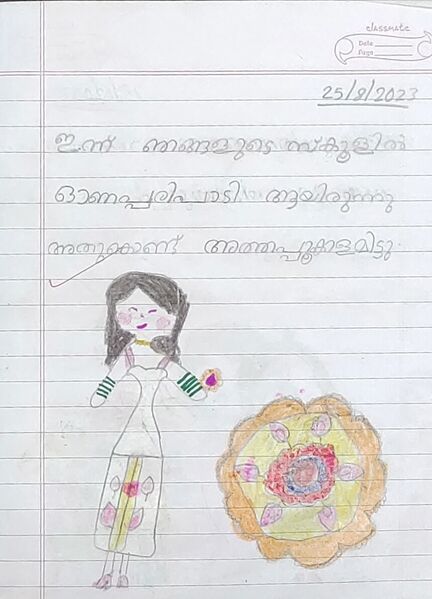 classmate
Date
Page
25/8/2023
ഇന്ന് ഞങ്ങളുടെ സ്കൂളിൽ
ഓണപ്പരിപാടി ആയിരുന്നു
അതുകൊണ്ട് അത്തപ്പൂക്കളമിട്ടു.